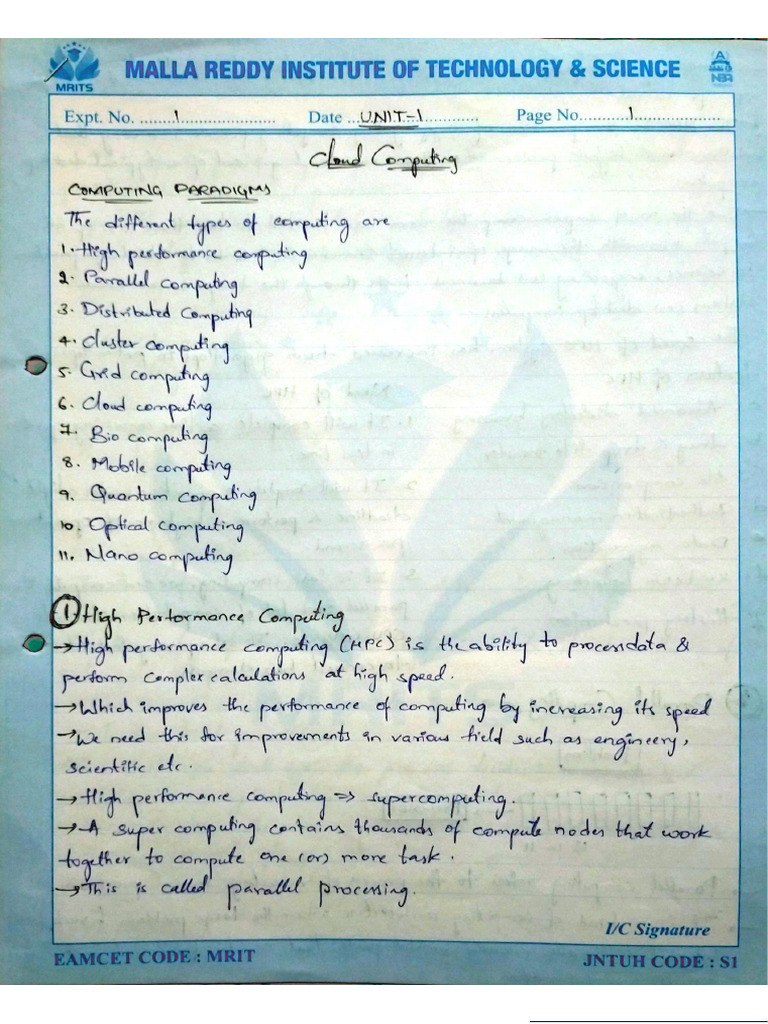 MRITS
MALLA REDDY INSTITUTE OF TECHNOLOGY & SCIENCE
NBA
Expt. No. ........1...................... Date ...UNIT-1............ Page No...........1..................
Cloud Computing
COMPUTING PARADIGMS
The different types of computing are
1. High performance computing
2. Parallel computing
3. Distributed Computing
4. Cluster computing
5. Grid computing
6. Cloud computing
7. Bio computing
8. Mobile computing
9. Quantum computing
10. Optical computing
11. Nano computing
1. High Performance Computing
→ High performance computing (HPC) is the ability to process data &
perform complex calculations at high speed.
→ Which improves the performance of computing by increasing its speed
→ We need this for improvements in various field such as engineery,
scientific etc.
→ High performance computing => supercomputing.
→ A super computing contains thousands of compute nodes that work
together to compute one (or) more task.
→ This is called parallel processing.
I/C Signature
EAMCET CODE : MRIT JNTUH CODE : S1